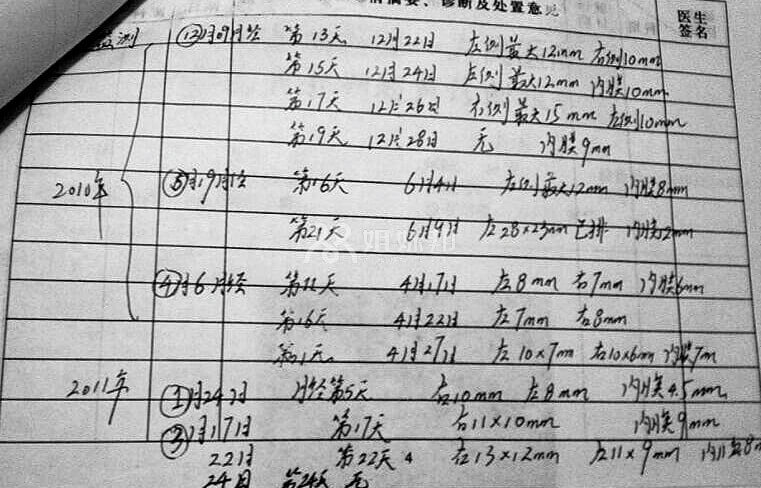 病情摘要、诊断及处置意见 医生签名
监测 ⑫月09月经 第13天 12月22日 左侧最大12mm 右侧10mm
第15天 12月24日 左侧最大12mm 内膜10mm
第17天 12月26日 右侧最大15mm 左侧10mm
第19天 12月28日 无 内膜9mm
2010年 ⑤月19月经 第16天 6月4日 左侧最大12mm 内膜8mm
第21天 6月9日 左28×23mm已排 内膜2mm
④月6月经 第12天 4月17日 左8mm 右7mm 内膜6mm
第16天 4月22日 左7mm 右8mm
第21天 4月27日 左10×7mm 右10×6mm 内膜7m
2011年 ①月24日 月经第5天 右10mm 左8mm 内膜4.5mm
③月17日 第17天 右11×10mm 内膜9mm
22日 第22天 右13×12mm 左11×9mm 内膜8m
24日 第24天 无
姐妹知